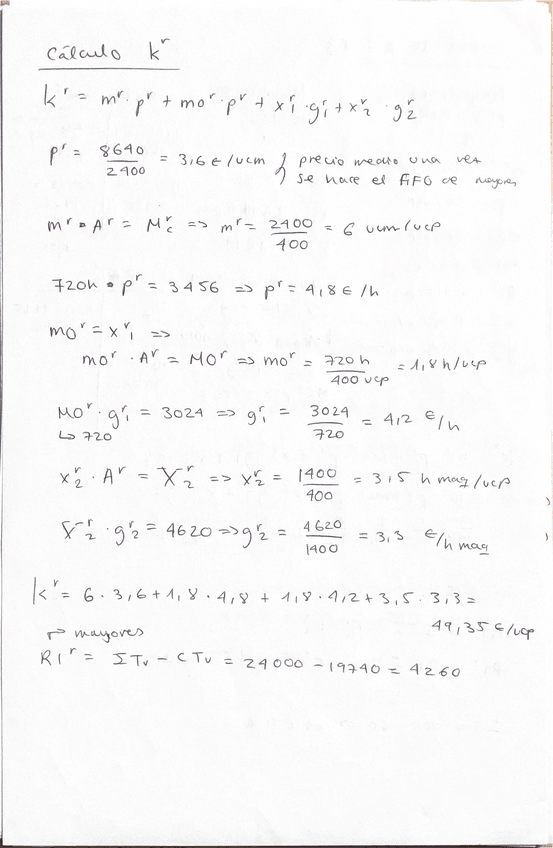 Cálculo kʳ
kʳ = mʳ · pʳ + moʳ · pʳ + xʳ₁ · gʳ₁ + xʳ₂ · gʳ₂
pʳ = 8640/2400 = 3,6 €/ucm } precio medio una vez
se hace el FIFO de mayores
mʳ · Aʳ = Mʳc => mʳ = 2400/400 = 6 ucm/ucp
720h · pʳ = 3456 => pʳ = 4,8 € /h
moʳ = xʳ₁ =>
moʳ · Aʳ = MOʳ => moʳ = 720 h/400 ucp = 1,8 h/ucp
MOʳ · gʳ₁ = 3024 => gʳ₁ = 3024/720 = 4,2 €/h
↳ 720
xʳ₂ · Aʳ = Xʳ₂ => xʳ₂ = 1400/400 = 3,5 h maq/ucp
Xʳ₂ · gʳ₂ = 4620 => gʳ₂ = 4620/1400 = 3,3 €/h maq
kʳ = 6 · 3,6 + 1,8 · 4,8 + 1,8 · 4,2 + 3,5 · 3,3 =
49,35 €/ucp
↱ mayores
RIʳ = ΣTv - CTv = 24000 - 19740 = 4260